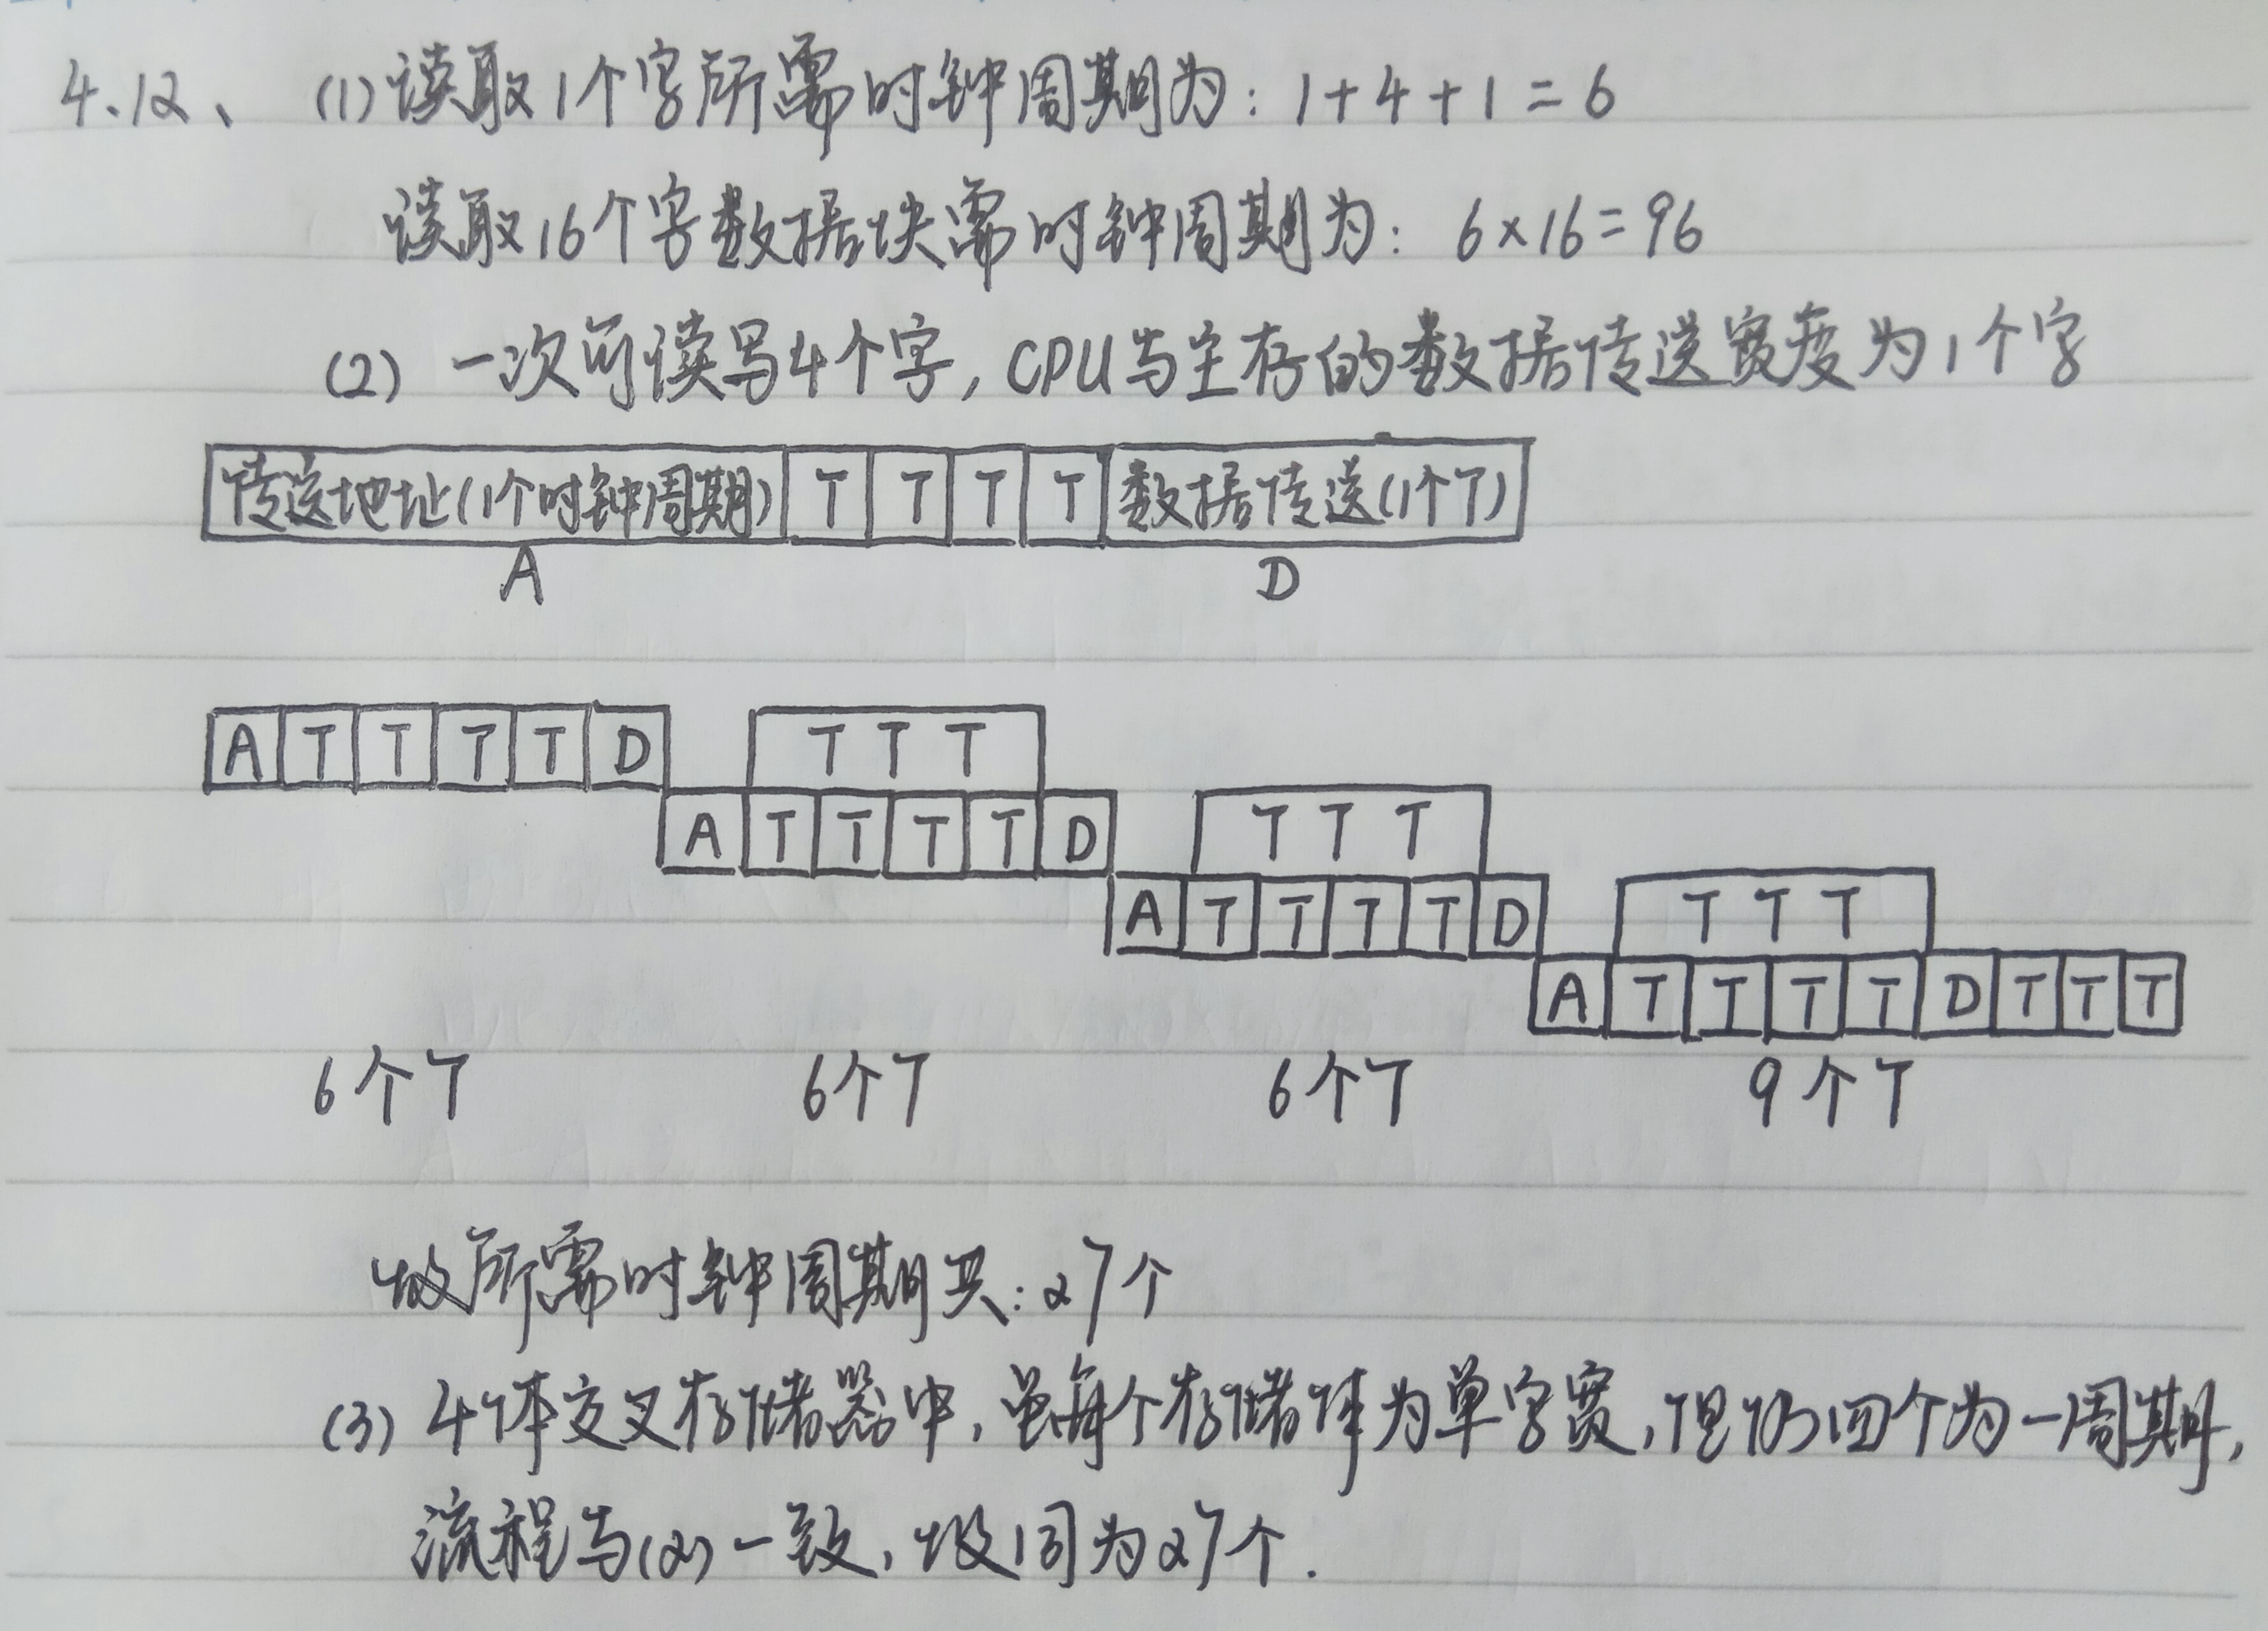 4.12、 (1) 读取1个字所需时钟周期为: 1+4+1=6
读取16个字数据块需时钟周期为: 6×16=96
(2) 一次可读写4个字, CPU与主存的数据传送宽度为1个字
传送地址(1个时钟周期) T T T T 数据传送(1个T)
A D
A T T T T D T T T
A T T T T D T T T
A T T T T D T T T
A T T T T D T T T
6个T 6个T 6个T 9个T
故所需时钟周期共: 27个
(3) 4体交叉存储器中, 虽每个存储体为单字宽, 但仍四个为一周期,
流程与(2)一致, 故同为27个.